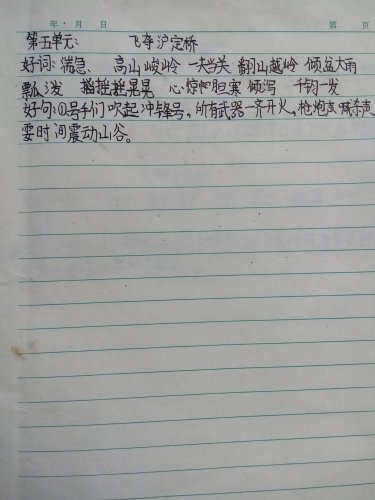 年 月 日 第 页
第五单元: 飞夺泸定桥
好词: 湍急、 高山峻岭 一夫当关 翻山越岭 倾盆大雨
瓢泼 摇摇晃晃 心惊胆寒 倾泻 千钧一发
好句:①号手们吹起冲锋号,所有武器一齐开火,枪炮声喊杀声
霎时间震动山谷。